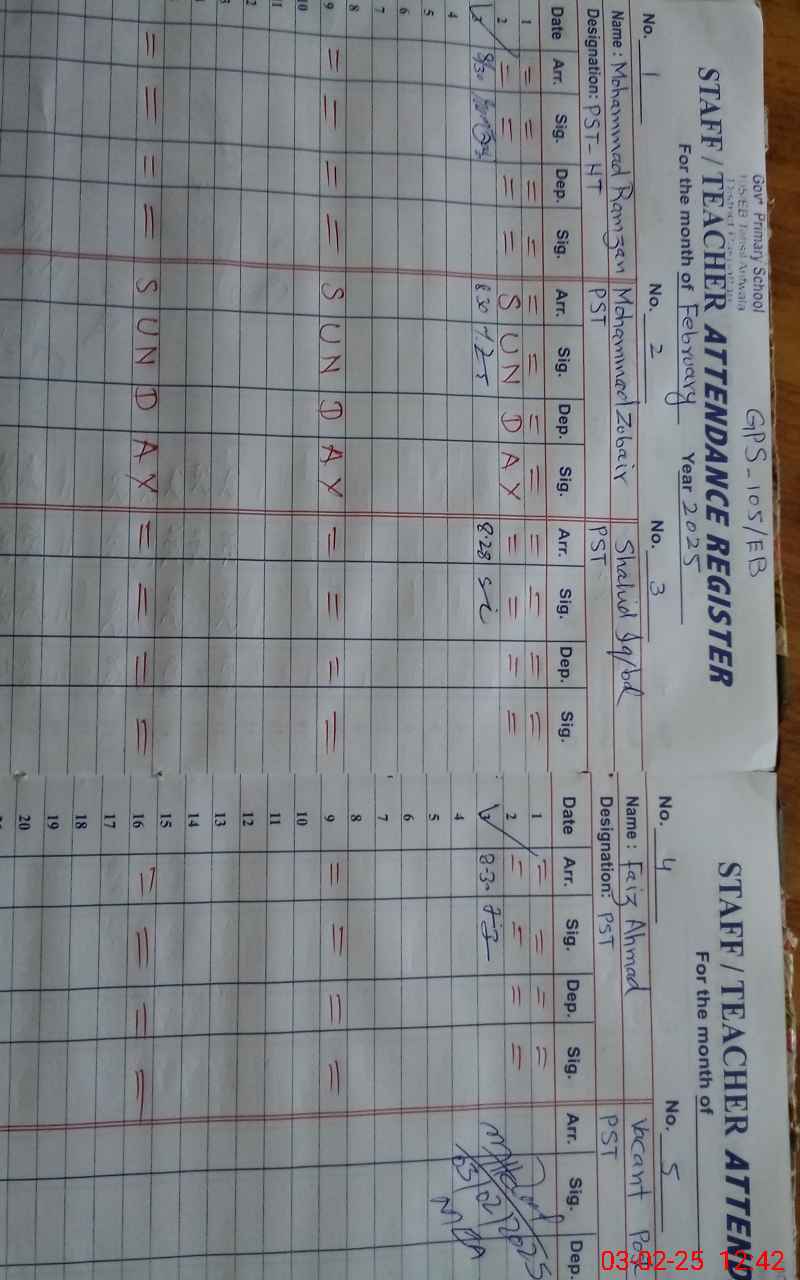 Govt Primary School
105/EB Tehsil Arifwala
GPS-105/EB
STAFF / TEACHER ATTENDANCE REGISTER
For the month of February Year 2025
No. 1 No. 2 No. 3
Name : Mohammad Ramzan Mohammad Zubair Shahid Iqbal
Designation: PST-HT PST PST
Date Arr. Sig. Dep. Sig. Arr. Sig. Dep. Sig. Arr. Sig. Dep. Sig.
1 = = = = = = = = = = = =
2 = = = = S U N D A Y = = = =
3 8/30 8.30 8.28
4
5
6
7
8
9 = = = = S U N D A Y = = = =
10
11
= = = = S U N D A Y = = = =
STAFF / TEACHER ATTEND
For the month of
No. 4 No. 5
Name : Faiz Ahmad Vacant Post
Designation: PST PST
Date Arr. Sig. Dep. Sig. Arr. Sig. Dep.
1 = = = =
2 = = = =
3 8-30
4
5
6
7
8
9 = = = =
10
11
12
13
14
15
16 = = = =
17
18
19
20
03/2/2025
03-02-25 12:42